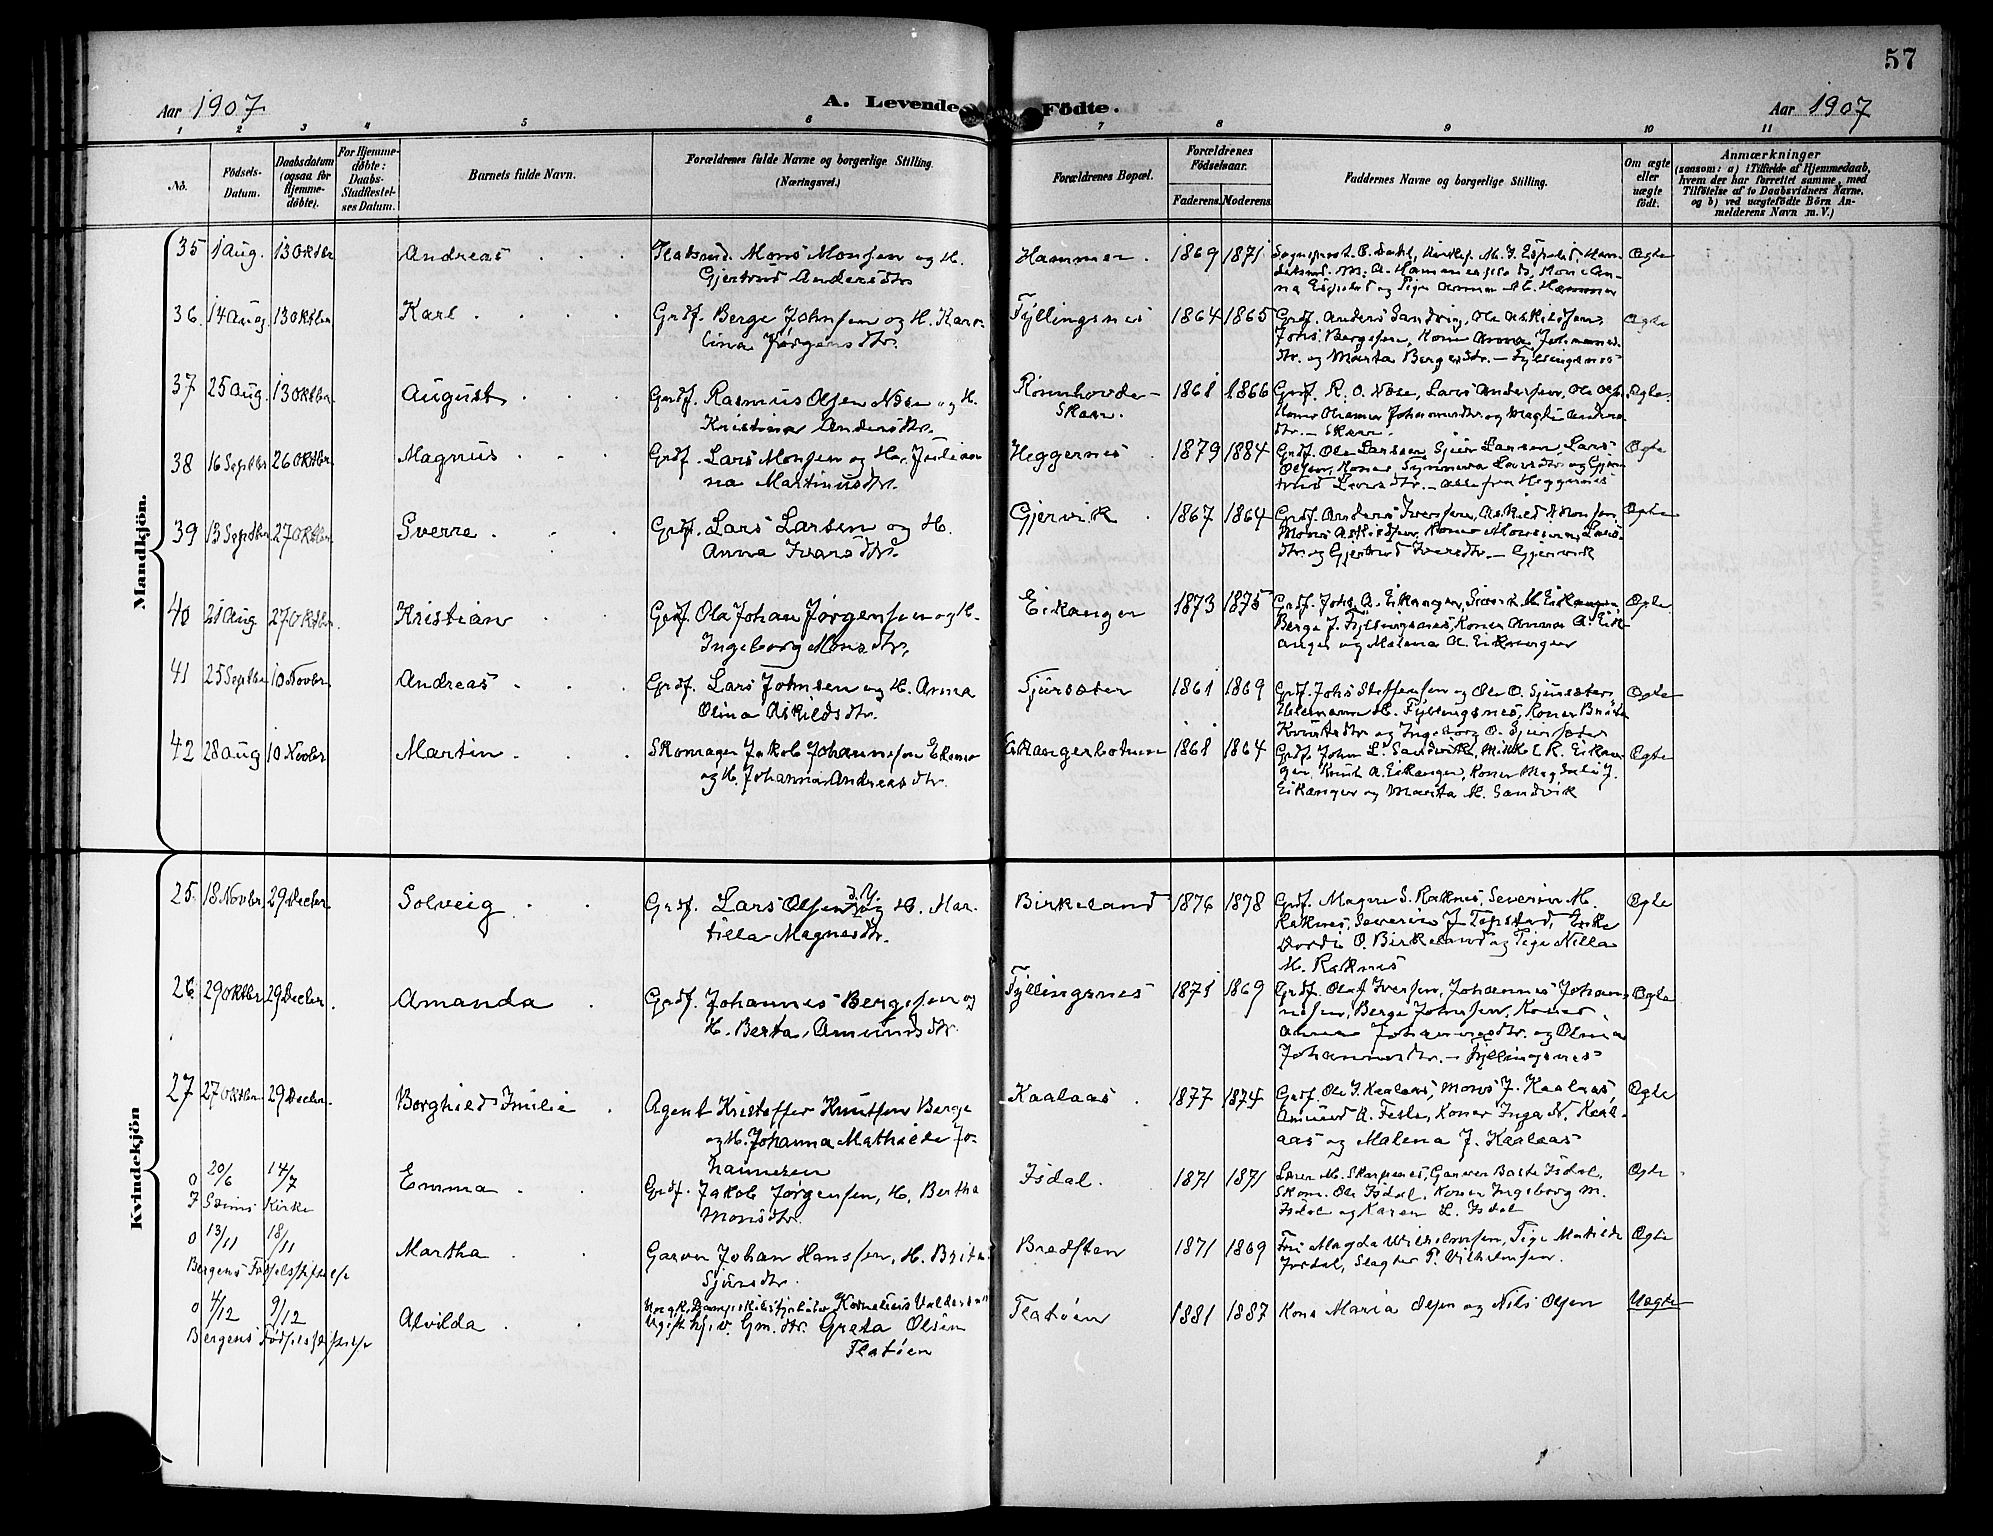 57
Aar 1907
A. Levende Födte.
Aar 1907
1 2 3 4 5 6 7 8 9 10 11
No.
Födsels-Datum.
Daabsdatum (ogsaa for Hjemmedøbte).
For Hjemmedøbte: Daabs-Stadfæstelses Datum.
Barnets fulde Navn.
Forældrenes fulde Navne og borgerlige Stilling.
(Næringsvei.)
Forældrenes Bopæl.
Forældrenes Födselsaar.
Faderens. Moderens.
Faddernes Navne og borgerlige Stilling.
Om ægte eller uægte født.
Anmærkninger
(saasom: a) i Tilfælde af Hjemmedaab,
hvem der har forrettet samme, med
Tilføielse af to Daabsvidners Navne,
og b) ved uægtefödte Börn An-
melderens Navn m. V.)
Mandkjön.
35 1 Aug. 13 Oktbr Andreas Mons Monsen og H.
Gjertrud Andersdtr
Hammer 1869 1871 Ægte
36 14 Aug 13 Oktbr Karl Grdf. Berge Johnsen og H. Karo-
lina Jørgensdtr.
Fyllingsnes 1864 1865 Grdf. Anders Sandvig, Ole Askildsen,
Johs Bergesen, Koner Anna Johannes-
dtr. og Marta Bergesdtr. – Fyllingsnes
Ægte
37 25 Aug. 13 Oktbr. August Grdf. Rasmus Olsen Nøse og H.
Kristina Andersdtr.
Rønnhovde-
Skaar.
1861 1866 Grdf. R. O. Nøse, Lars Andersen, Ole
dtr. – Skaar.
Ægte.
38 16 Septbr 26 Oktbr. Magnus Grdf. Lars Monsen og H. Julian-
na Martinusdtr.
Heggernes 1879 1884 Grdf. Ole Larssen, Gjert Larsen, Lars
Olsen, Koner Synneva Larsdtr. og Gjer-
trud Larsdtr. – Alle fra Heggernes
Ægte
39 13 Septbr 27 Oktbr Sverre Grdf. Lars Larsen og H.
Anna Ivarsdtr.
Gjervik 1867 1864 Grdf. Anders Iversen, Askild Monsen,
Mons Askildsen, Koner Lars-
dtr. og Gjertrud Iversdtr. – Gjervik
Ægte
40 21 Aug 27 Oktbr. Kristian Grdf. Ola Johan Jørgensen og H.
Ingeborg Monsdtr.
Eikanger 1873 1875 Grdf. Johs. A. Eikanger, M Eikanger,
Berge J. Fyllingsnes, Koner Anna A. Eik-
anger og Malena A. Eikanger
Ægte
41 25 Septbr 10 Novbr. Andreas Grdf. Lars Johnsen og H. Anna
Olina Askildsdtr.
Sjursæter 1861 1869 Grdf. Johs Steffensen og Ole O. Sjursæter,
H. Fyllingsnes, Koner Brita
Knutsdtr og Ingeborg O. Sjursæter
Ægte
42 28 Aug 10 Novbr Martin Skomager Jakob Johannesen
og H. Johanna Andreasdtr.
Eikangerbotnen 1868 1864 Grdf. John L. Sandvik, Mikkel R. Eikan-
ger, Knut A. Eikanger, Koner Magdali J.
Eikanger og Marta H. Sandvik
Ægte
Kvindekjön
25 18 Novbr. 29 Decbr. Solveig Grdf. Lars Olsen d.Y. og H. Mar-
tilla Magnesdtr.
Birkeland 1876 1878 Grdf. Magne S. Raknes, Severin M.
Raknes, Severin J. Topstad, Enke
Dordi O. Birkeland og Pige Nilla
M. Raknes
Ægte
26 29 Oktbr 29 Decbr. Amanda Grdf. Johannes Bergesen og
H. Berta Amundsdtr.
Fyllingsnes 1871 1869 Grdf. Olaf Iversen, Johannes Johan-
nesen, Berge Johnsen, Koner
Anna Johannesdtr. og Olina
Johannesdtr. – Fyllingsnes
Ægte
27 27 Oktbr. 29 Decbr. Borghild Emilie Agent Kristoffer Knutsen Berge
og H. Johanna Mathilde Jo-
hannesen
Kaalaas 1877 1874 Grdf. Ole J. Kaalaas, Mons J. Kaalaas,
Amund A. Festo, Koner Inga N. Kaal-
aas og Malena J. Kaalaas
Ægte
0 20/6 14/7 Emma Grdf. Jakob Jørgensen, H. Bertha
Monsdtr.
I Sæims Kirke
Isdal 1871 1871 Lærer M. Skarpenes, Garver Baste Isdal,
Skom. Ole Isdal, Koner Ingeborg M.
Isdal og Karen L. Isdal
Ægte
0 13/11 18/11 Martha Garver Johan Hanssen, H. Brita
Sjursdtr.
Bergens Fødselsstiftelse
Bredsten 1871 1869 Frü Magda Wilhelmsen, Pige Matilde
Isdal, Slagter P. Vilhelmsen.
Ægte
0 4/12 9/12 Alvilda Kornelius
Ugift hjv. Gm. dtr. Greta Olsen
Flatøen
Bergens Fødselsstiftelse
Flatøen 1881 1887 Kone Maria Olsen og Nils Olsen
Uægte